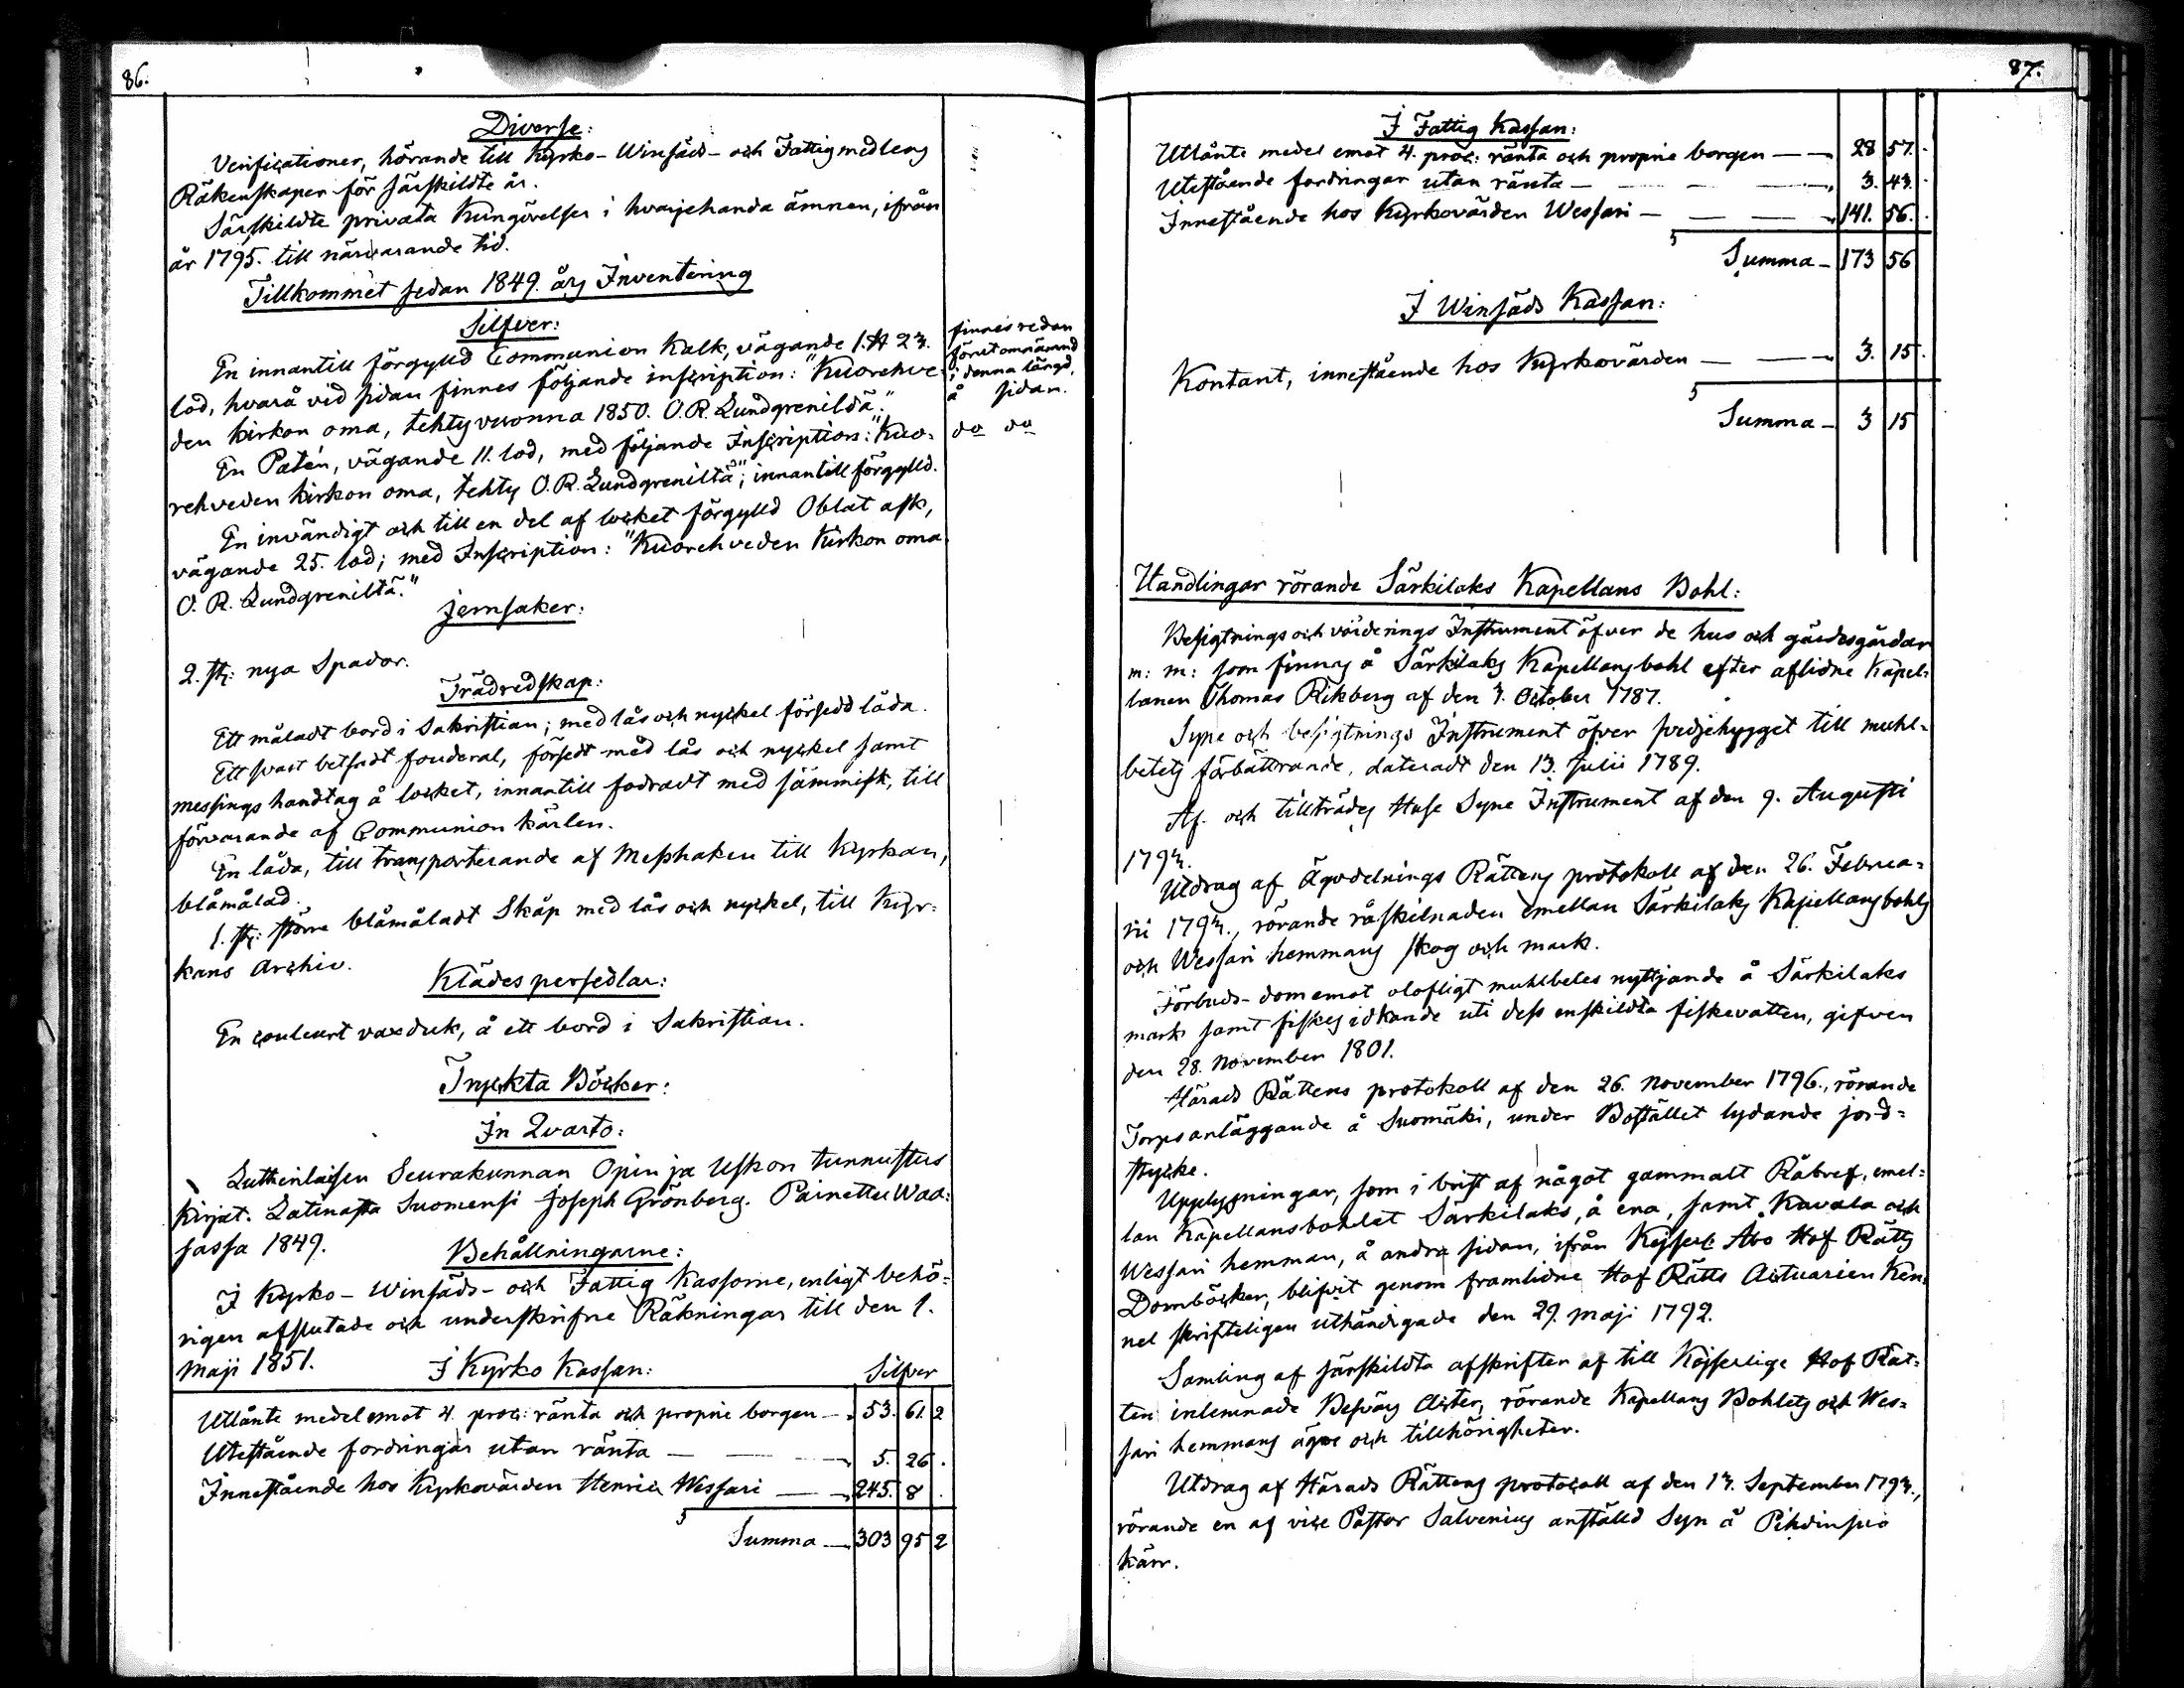 86.
Diverse:
Verificationer, hörande till Kyrko- Winsäds- och Fattigmedlens
Räkenskaper för särskildte år.
Särskildte privata Kungörelser i hvarjehanda ämnen, ifrån
år 1795. till närvarande tid.
Tillkommet sedan 1849. års Inventering
Silfver:
En innantill förgylld Communion Kalk, vägande 1. ℔ 23.
lod, hvarå vid sidan finnes följande inscription: "Kuorehve-
den kirkon oma, tehty vuonna 1850. O.R. Lundgrenildä."
finnes redan
förut omnämnd
i denna längd,
å sidan.
En Patén, vägande 11. lod, med följande Inscription: "Kuo-
rehveden kirkon oma, tehty O.R. Lundgreniltä"; innantill förgylld.
do do
En invändigt och till en del af locket förgylld Oblat ask,
vägande 25. lod; med Inscription: "Kuorehveden Kirkon oma
O. R. Lundgreniltä."
Jernsaker:
2. st: nya Spador.
Trädredskap:
Ett måladt bord i Sakristian; med lås och nyckel försedd låda.
Ett svart betsadt fouderal, försedt med lås och nyckel samt
messings handtag å locket, innantill fodradt med sämmisk, till
förvarande af Communion kärlen.
En låda, till transporterande af Messhaken till Kyrkan,
blåmålad.
1. st: större blåmåladt Skåp med lås och nyckel, till Kyr-
kans Archiv.
Klädespersedlar:
En couleurt vaxduk, å ett bord i Sakristian.
Tryckta Böcker:
In Qvarto:
Lutherilaisen Seurakunnan Opin ja Uskon tunnustus
kirjat. Latinasta Suomensi Joseph Grönberg. Painettu Waa-
sassa 1849.
Behållningarne:
I Kyrko- Winsäds- och Fattig Kassorne, enligt behö-
rigen afslutade och underskrifne Räkningar till den 1.
Maji 1851.
I Kyrko Kassan: Silfver
Utlånte medel emot 4. proc: ränta och proprie borgen — 53. 61. 2
Utestående fordringar utan ränta — 5. 26.
Innestående hos Kyrkovärden Henric Wessari — 245. 8.
Summa — 303 95 2
87.
I Fattig Kassan:
Utlånte medel emot 4. proc: ränta och proprie borgen — 28 57.
Utestående fordringar utan ränta — 3. 43.
Innestående hos Kyrkovärden Wessari — 141. 56.
Summa — 173 56
I Winsäds Kassan:
Kontant, innestående hos Kyrkovärden — 3. 15.
Summa — 3 15
Handlingar rörande Särkilaks Kapellans Bohl:
Besigtnings och värderings Instrument öfver de hus och gärdesgårdar
m: m: som finnas å Särkilaks Kapellansbohl efter aflidne Kapel-
lanen Thomas Rikberg af den 3. October 1787.
Syne och besigtnings Instrument öfver svedjehygget till muhl-
betets förbättrande, dateradt den 13. Julii 1789.
Af- och tillträdes Huse Syne Instrument af den 9. Augusti
1793.
Utdrag af Ägodelnings Rättens protokoll af den 26. Februa-
rii 1793., rörande råskilnaden emellan Särkilaks Kapellansbohls
och Wessari hemmans skog och mark.
Förbuds- dom emot olofligt muhlbetes nyttjande å Särkilaks
mark samt fiskes idkande uti dess enskildta fiskevatten, gifven
den 28. November 1801.
Härads Rättens protokoll af den 26. November 1796., rörande
Torps anläggande å Suomäki, under Bostället lydande jord-
stycke.
Upplysningar, som i brist af något gammalt Råbref, emel-
lan Kapellansbohlet Särkilaks, å ena, samt Kavala och
Wessari hemman, å andra sidan, ifrån Kejserl. Åbo Hof Rätts
Domböcker, blifvit genom framlidne Hof Rätts Actuarien Ken-
nel skrifteligen uthändigade den 29. Maji 1792.
Samling af särskildta afskrifter af till Kejserlige Hof Rät-
ten inlemnade Besvärs Acter, rörande Kapellans Bohlets och Wes-
sari hemmans ägor och tillhörigheter.
Utdrag af Härads Rättens protocoll af den 13. September 1793.,
rörande en af vice Pastor Salvenius anställd Syn å Pihdinsuo
kärr.